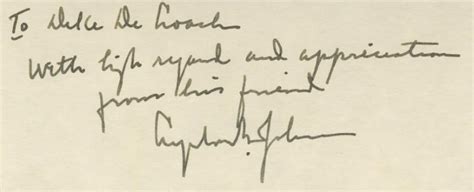 To Deke De Loach
With high regard and appreciation
from his friend
Lyndon B. Johnson